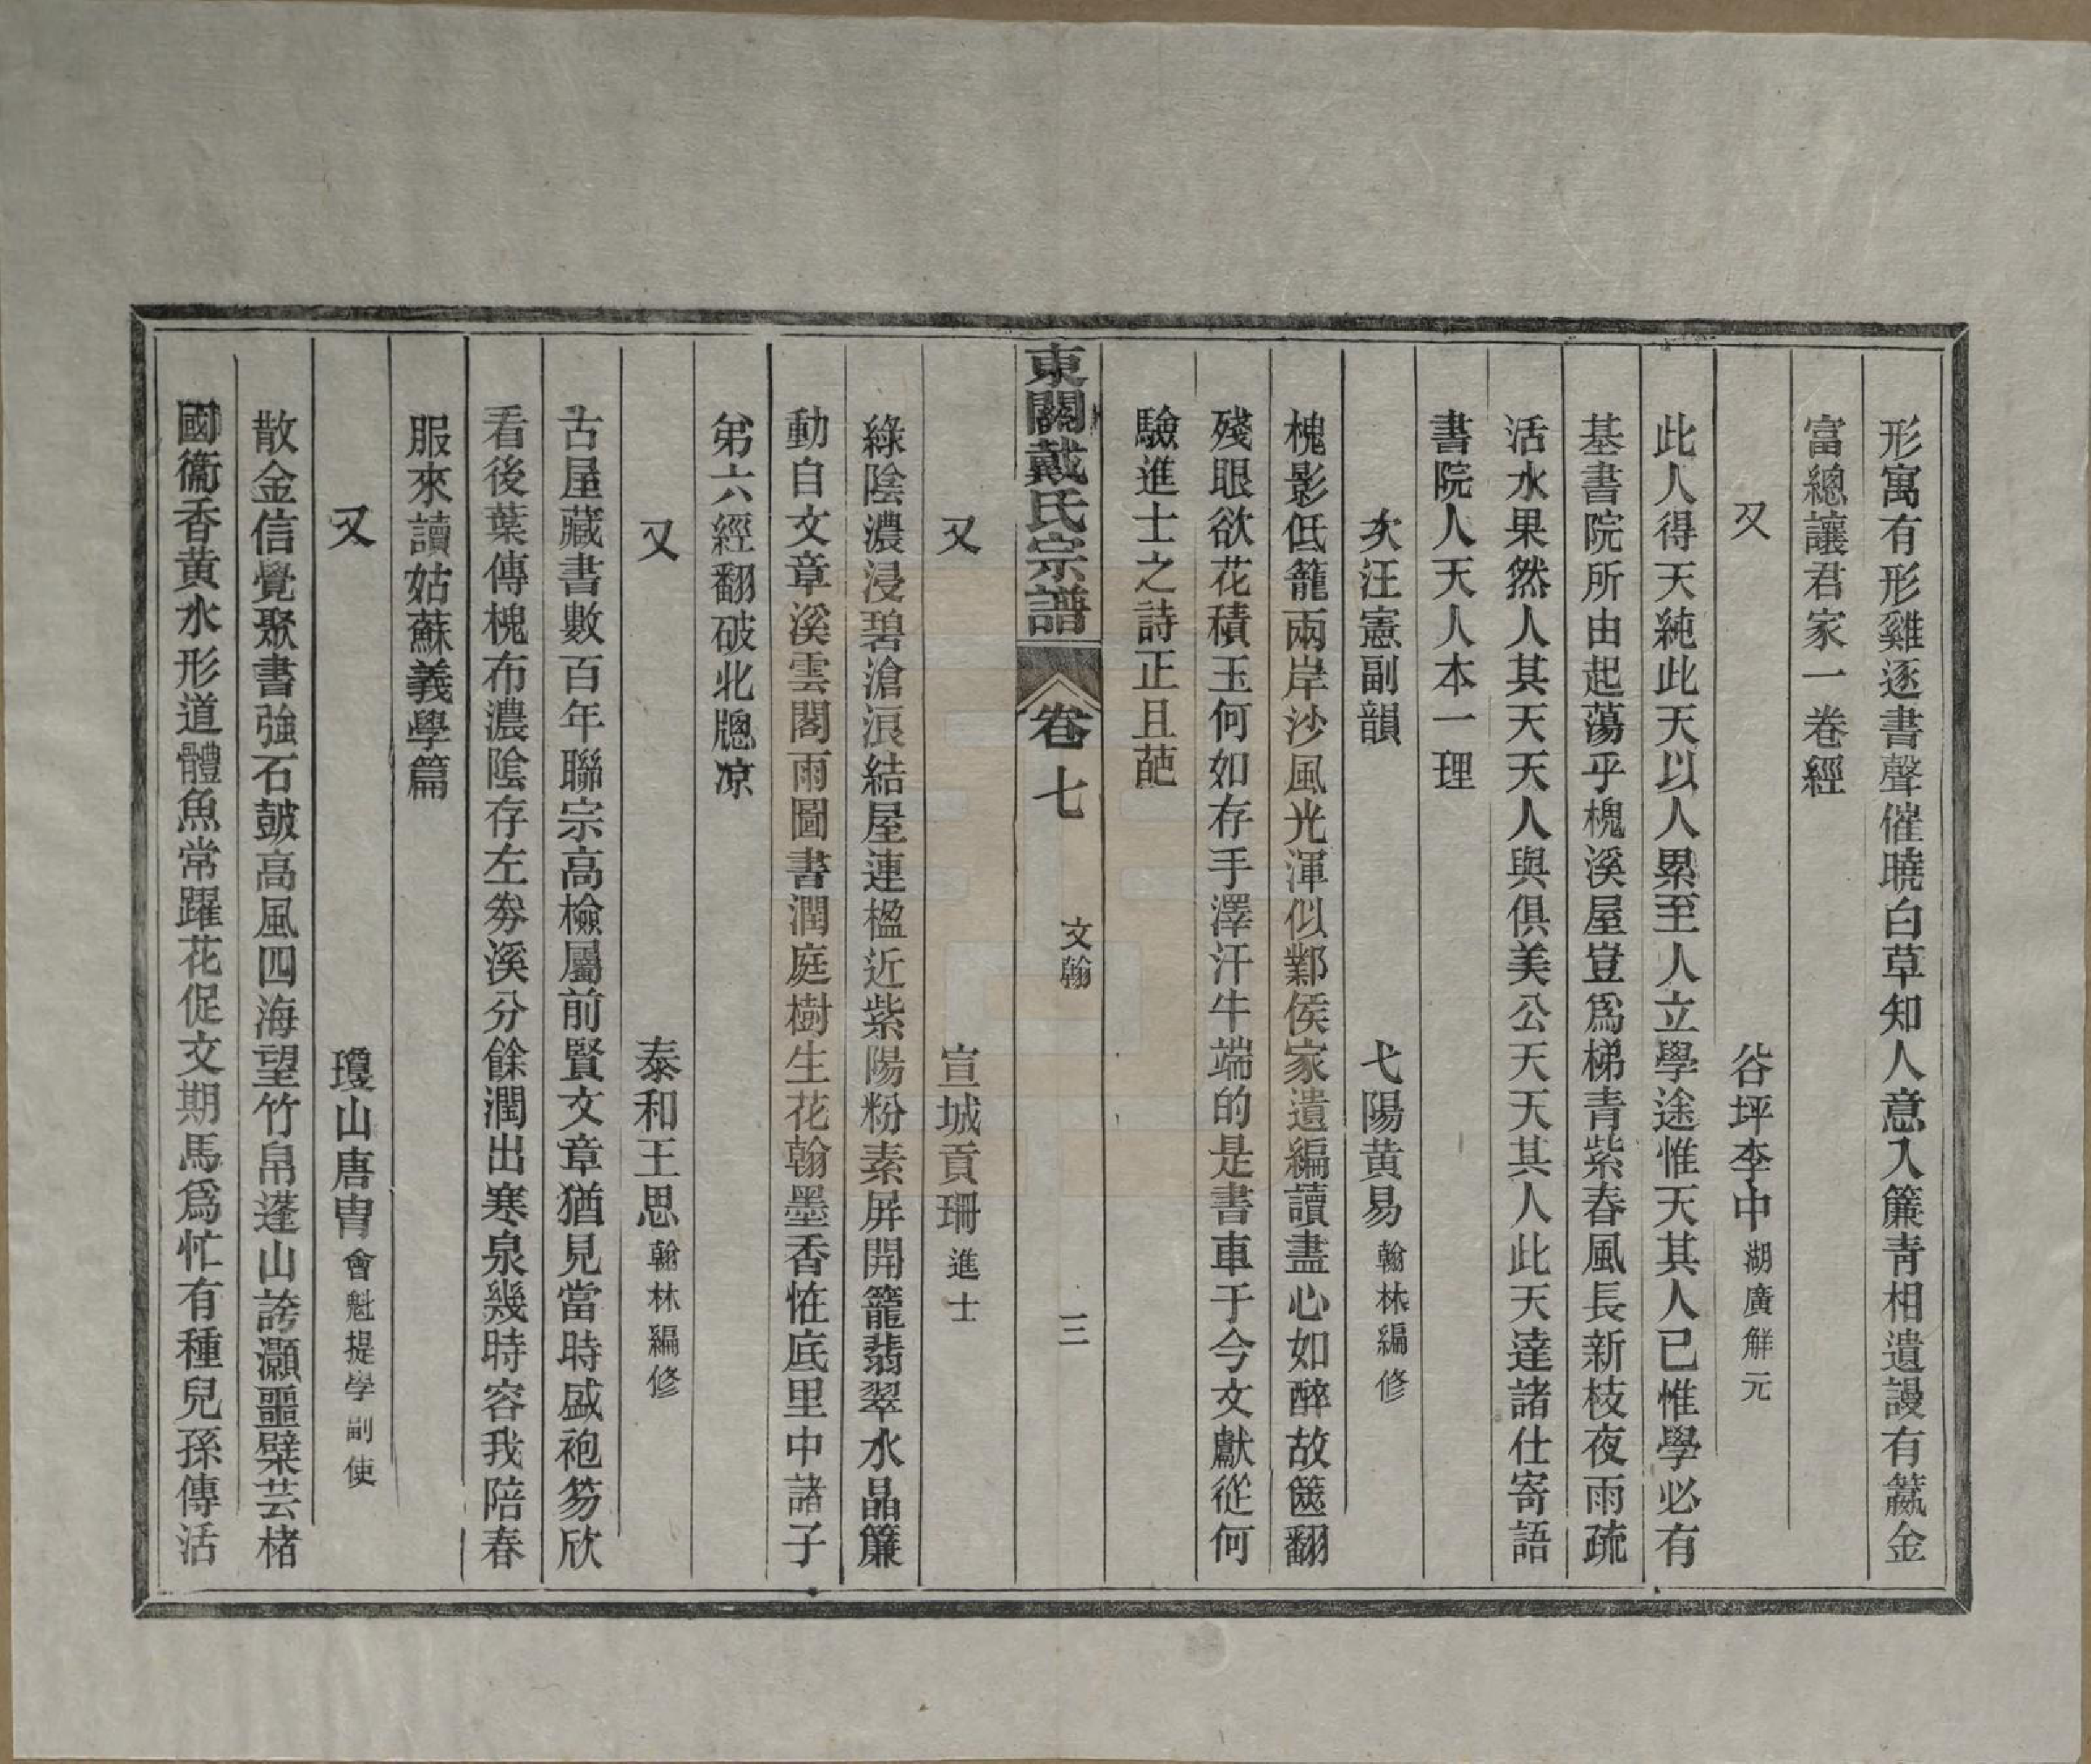 形寓有形雞逐書聲催曉白草知人意入簾青相遺謾有籯金
富總讓君家一卷經
又 谷坪李中湖廣解元
此人得天純此天以人累至人立學途惟天其人已惟學必有
基書院所由起蕩乎槐溪屋豈爲梯青紫春風長新枝夜雨疏
活水果然人其天天人與俱美公天天其人此天達諸仕寄語
書院人天人本一理
次汪憲副韻 弋陽黄易翰林編修
槐影低籠兩岸沙風光渾似鄴侯家遺編讀盡心如醉故篋翻
殘眼欲花積玉何如存手澤汗牛端的是書車于今文獻從何
驗進士之詩正且葩
東關戴氏宗譜 卷七 文翰 三
又 宣城貢珊進士
綠陰濃浸碧滄浪結屋連楹近紫陽粉素屏開籠翡翠水晶簾
動自文章溪雲閣雨圖書潤庭樹生花翰墨香恠底里中諸子
弟六經翻破北牕凉
又 泰和王思翰林編修
古屋藏書數百年聯宗高檢屬前賢文章猶見當時盛袍笏欣
看後葉傳槐布濃陰存左劵溪分餘潤出寒泉幾時容我陪春
服來讀姑蘇義學篇
又 瓊山唐胄會魁提學副使
散金信覺聚書強石皷高風四海望竹帛蓬山誇灝噩檗芸楮
國衞香黄水形道體魚常躍花促文期馬爲忙有種兒孫傳活